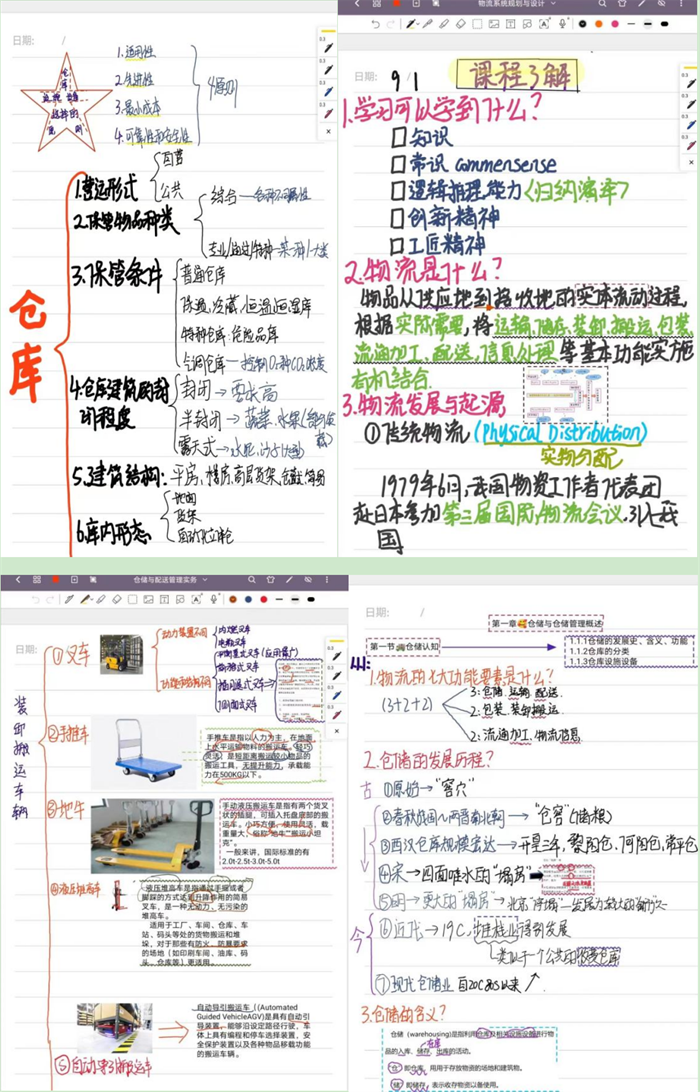 日期: /
仓库
选择的
1.适用性
2.先进性
3.最小成本
4.可靠性和安全性
4原则
仓库
1.营运形式
自营
公共
2.保管物品种类
综合
3.保管条件
普通仓库
保温、冷藏、恒温恒湿库
特种仓库:危险品库
气调仓库
4.仓库建筑的封闭程度
封闭
半封闭→蔬菜、水果
露天式
5.建筑结构:平房、楼房、高层货架、罐式、简易
6.库内形态:
地面
货架
自动化立体仓
物流系统规划与设计
日期: 9 / 1
课程了解
1.学习可以学到什么?
知识
常识 commensense
逻辑推理能力(归纳演绎)
创新精神
工匠精神
2.物流是什么?
物品从供应地到接收地的实体流动过程,
根据实际需要,将运输、储存、装卸、搬运、包装、
流通加工、配送、信息处理等基本功能实施
有机结合.
3.物流发展与起源
①传统物流(Physical Distribution)
实物分配
1979年6月,我国物资工作者代表团
赴日本参加第三届国际物流会议.引入我
国
仓储与配送管理实务
日期:
装卸搬运车辆
①叉车
动力装置不同
内燃叉车
电瓶叉车
平衡重式叉车(应用最广)
前移式叉车
②手推车
手推车是指以人力为主,在地面
上水平运输物料的搬运车。轻巧
灵活,是短距离搬运较小物品的
搬运工具,无提升能力,承载能
力在500KG以下。
③地牛
手动液压搬运车是指有两个货叉
状的插腿,可插入托盘底部的搬
运车。小巧方便、使用灵活,载
重量大,俗称“地牛”“搬运小坦
克”。
一般来讲,国际标准的有
2.0t-2.5t-3.0t-5.0t
④液压堆高车
液压堆高车是指通过手摇或者
脚踩的方式达到升降作用的简易
叉车,是一种无动力、无污染的
堆高车。
适用于工厂、车间、仓库、车
站、码头等处的货物搬运和堆
垛,对于那些有防火、防暴要求
的场地(如印刷车间,油库、码
头、仓库等)更适用。
⑤自动导引搬运车
自动导引搬运车((Automated
Guided VehicleAGV)是具有自动引
导装置,能够沿设定路径行驶,车
体上具有编程和停车选择装置,安
全保护装置以及各种物品移载功能
的搬运车辆。
日期: /
第一章🥰仓储与仓储管理概述
第一节🚛仓储认知
1.1.1仓储的发展史、含义、功能
1.1.2仓库的分类
1.1.3仓库设施设备
1.物流的七大功能要素是什么?
(3+2+2)
3:仓储.运输.配送.
2:包装、装卸搬运.
2:流通加工、物流信息
2.仓储的发展历程?
古
①原始→“窖穴”
②春秋战国~两晋南北朝→“仓窖”(储粮)
③西汉仓库规模宏达→
④宋→四面临水的“塌房”
⑤明→更大的“塌房”
今
⑥近代→19C.堆栈业得到发展
类似于一个公共的收费仓库
⑦现代仓储业
3.仓储的含义?
仓储(warehousing)是指利用仓库及相关设施设备进行物
品的入库、储存、出库的活动。
仓:即仓库,用用于存放物资的场地和建筑物。
储:即储存,表示收存物资以备使用。